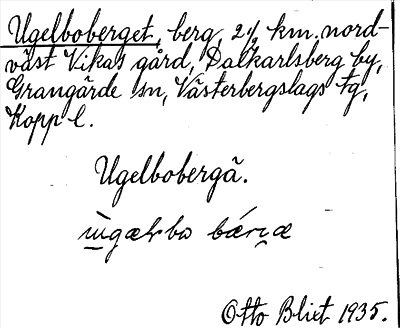 Ugelboberget, berg, 2½ km. nord-
väst Vikas gård, Dalkarlsberg by,
Grangärde sn, Västerbergslags tg,
Kopp l.
Ugelbobergä.
Otto Blixt 1935.